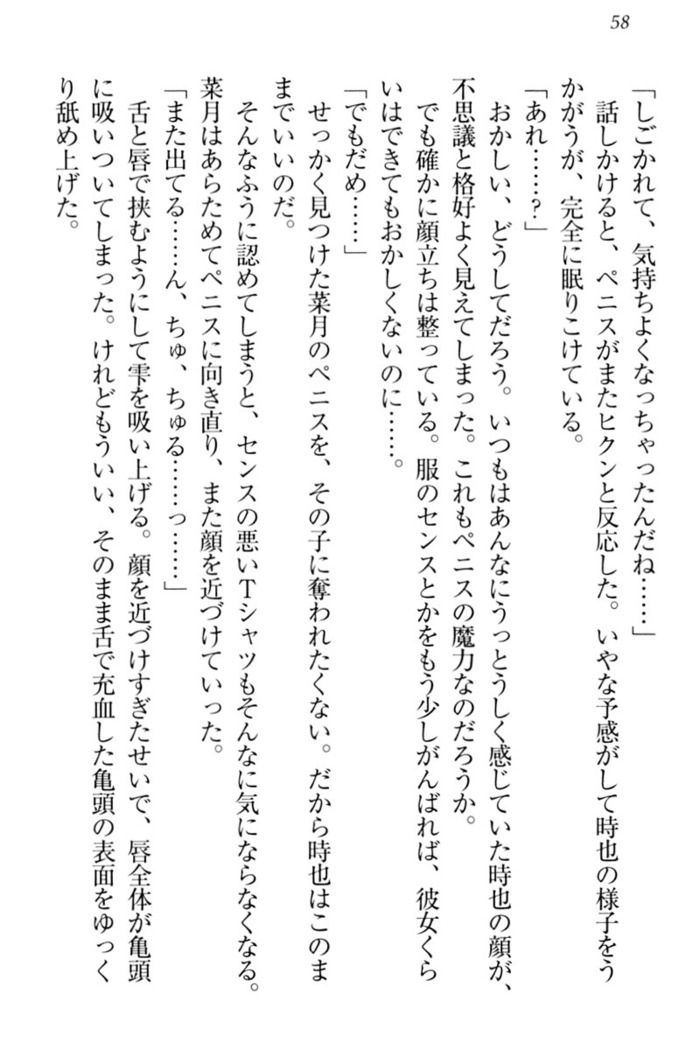 58
「しごかれて、気持ちよくなっちゃったんだね……」
話しかけると、ペニスがまたヒクンと反応した。いやな予感がして時也の様子をう
かがうが、完全に眠りこけている。
「あれ……？」
おかしい、どうしてだろう。いつもはあんなにうっとうしく感じていた時也の顔が、
不思議と格好よく見えてしまった。これもペニスの魔力なのだろうか。
でも確かに顔立ちは整っている。服のセンスとかをもう少しがんばれば、彼女くら
いはできてもおかしくないのに……。
「でもだめ……」
せっかく見つけた菜月のペニスを、その子に奪われたくない。だから時也はこのま
までいいのだ。
そんなふうに認めてしまうと、センスの悪いTシャツもそんなに気にならなくなる。
菜月はあらためてペニスに向き直り、また顔を近づけていった。
「また出てる……ん、ちゅ、ちゅる……っ……」
舌と唇で挟むようにして雫を吸い上げる。顔を近づけすぎたせいで、唇全体が亀頭
に吸いついてしまった。けれどもういい、そのまま舌で充血した亀頭の表面をゆっく
り舐め上げた。